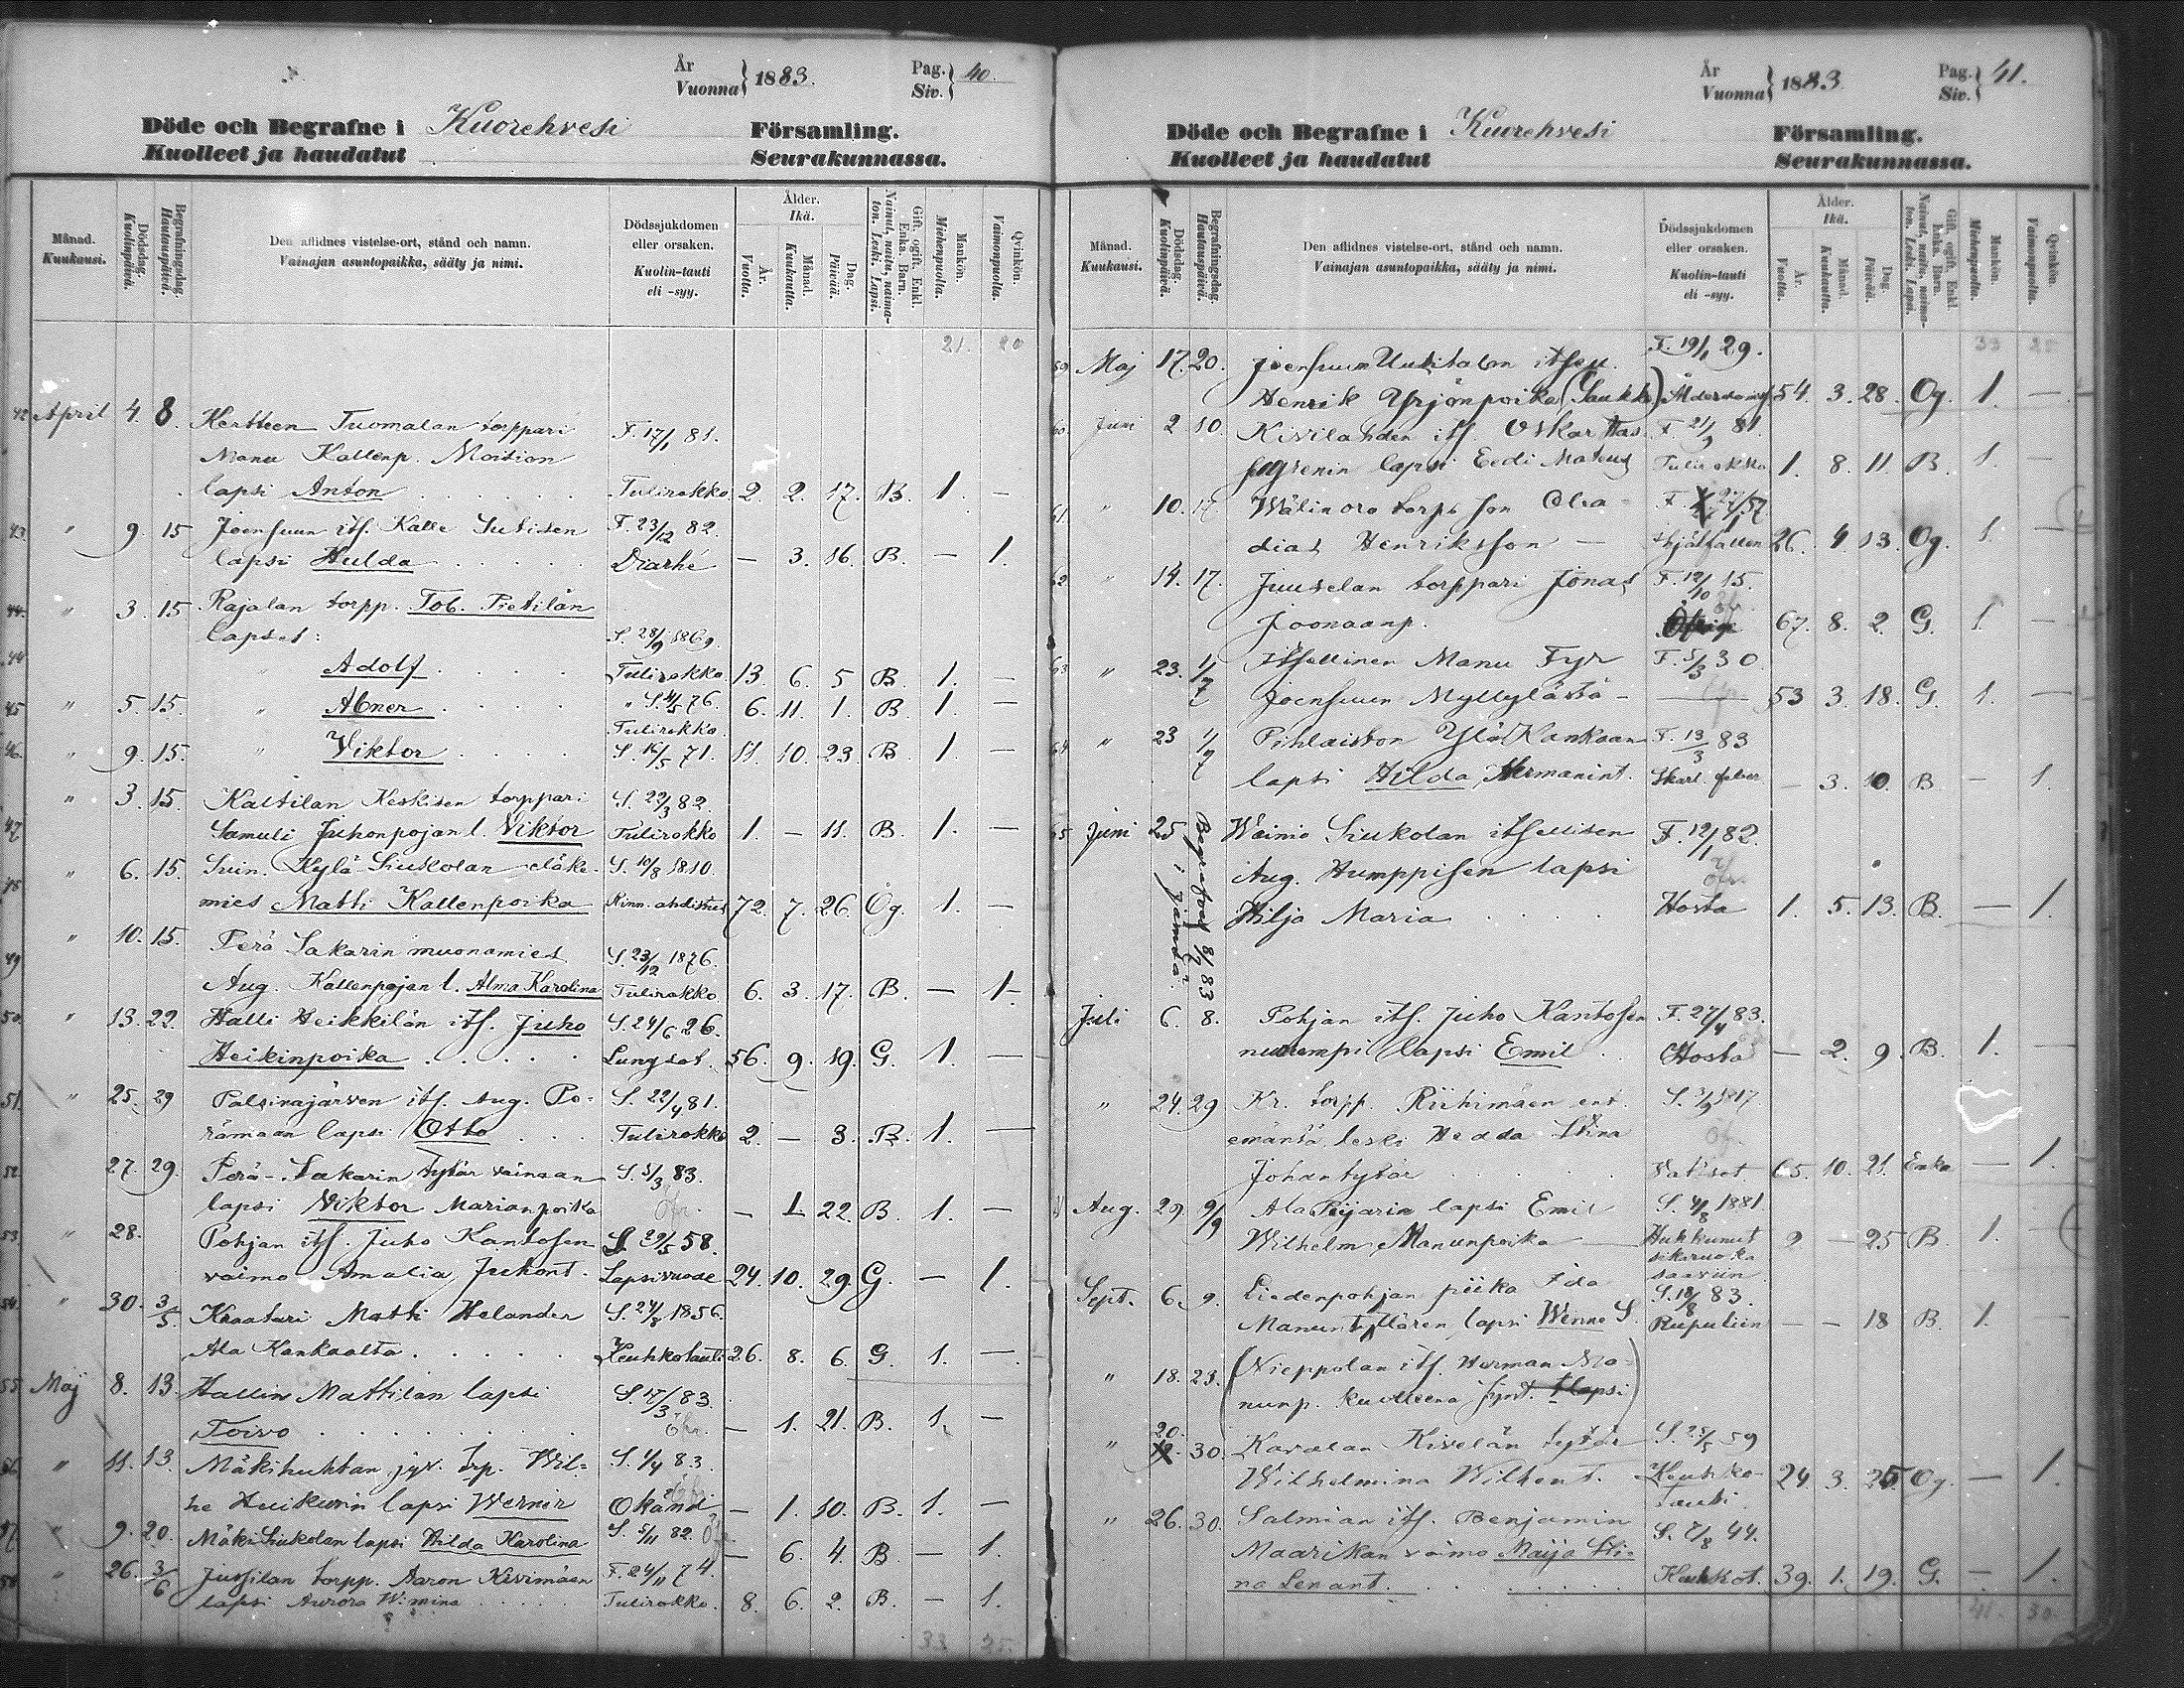 År
Vuonna } 1883.
Pag.
Siv. } 40.
Döde och Begrafne i Kuorehvesi Församling.
Kuolleet ja haudatut Seurakunnassa.
Månad.
Kuukausi.
Dödsdag.
Kuolinpäivä.
Begrafningsdag.
Hautauspäivä.
Den aflidnes vistelse-ort, stånd och namn.
Vainajan asuntopaikka, sääty ja nimi.
Dödssjukdomen
eller orsaken.
Kuolin-tauti
eli -syy.
Ålder.
Ikä.
År.
Vuotta.
Månad.
Kuukautta.
Dag.
Päivää.
Gift, ogift. Enkl.
Enka. Barn.
Nainut, naitu, naima-
ton. Leski. Lapsi.
Mankön.
Miehenpuolta.
Qvinkön.
Vaimonpuolta.
21. 20
42 April 4. 8. Kertteen Tuomalan torppari F. 17/1 81.
Manu Kallenp. Moision
lapsi Anton Tulirokko 2. 2. 17. B. 1. —
43. " 9. 15 Joensuun its. Kalle Sutisen F. 23/12 82.
lapsi Hulda Diarhé — 3. 16. B. — 1.
44. " 3. 15. Rajalan torpp. Tob. Pietilän
lapset: S. 28/9 1869.
44 " Adolf Tulirokko. 13. 6. 5 B. 1. —
45 " 5. 15. " Abner " S. 4/5 76. 6. 11. 1. B 1. —
Tulirokko.
46. " 9. 15. " Viktor S. 16/5 71. 11. 10. 23. B 1. —
" 3. 15. Kaltilan Keskisen torppari S. 22/3 82.
47 Samuli Juhonpojan l. Viktor Tulirokko 1. — 11. B. 1. —
" 6. 15. Suin. Kylä Siukolan eläke- S. 10/8 1810.
48 mies Matti Kallenpoika Rinn. ahdistus 72. 7. 26. Og. 1. —
" 10. 15. Perä Sakarin muonamies S. 23/12 1876.
49 Aug. Kallenpojan l. Alma Karolina Tulirokko 6. 3. 17. B. — 1.
50. " 13. 22. Halli Heikkilän its. Juho S. 24/6 26.
Heikinpoika Lungsot. 56. 9. 19. G. 1. —
51. " 25. 29 Palsinajärven its. Aug. Po- S. 22/4 81.
rämaan lapsi Otto Tulirokko 2. — 3. B. 1. —
52. 27. 29. Perä-Sakarin tytär vainaan S. 5/3 83.
lapsi Viktor Marianpoika öfr. — 1. 22. B. 1. —
53 " 28. Pohjan its. Juho Kantosen S. 29/5 58.
vaimo Amalia Juhont. Lapsivuode 24. 10. 29. G. — 1.
54. " 30. 3/5. Kraatari Matti Helander S. 24/8 1856.
Ala Kankaalta Keuhkotauti 26. 8. 6. G. 1. —
55 Maj 8. 13. Hallin Mattilan lapsi S. 17/3 83.
Toivo öfr. — 1. 21. B. 1. —
56. " 11. 13. Mäkihuhtan jyv. trp. Wil- S. 1/4 83.
he Huikurin lapsi Werner Okänd — 1. 10. B. 1. —
57. " 9. 20. Mäki Siukolan lapsi Hilda Karolina S. 5/11 82. — 6. 4. B — 1.
58 " 26. 3/6 Jussilan torpp. Aaron Kivimäen F. 24/11 74.
lapsi Aurora W:mina Tulirokko. 8. 6. 2. B. — 1.
33 25.
År
Vuonna } 1883.
Pag.
Siv. } 41.
Döde och Begrafne i Kuorehvesi Församling.
Kuolleet ja haudatut Seurakunnassa.
Månad.
Kuukausi.
Dödsdag.
Kuolinpäivä.
Begrafningsdag.
Hautauspäivä.
Den aflidnes vistelse-ort, stånd och namn.
Vainajan asuntopaikka, sääty ja nimi.
Dödssjukdomen
eller orsaken.
Kuolin-tauti
eli -syy.
Ålder.
Ikä.
År.
Vuotta.
Månad.
Kuukautta.
Dag.
Päivää.
Gift, ogift. Enkl.
Enka. Barn.
Nainut, naitu, naima-
ton. Leski. Lapsi.
Mankön.
Miehenpuolta.
Qvinkön.
Vaimonpuolta.
33 25
59 Maj 17. 20. Joensuun Uusitalon itsen. F. 19/1 29.
Henrik Yrjönpoika (Saukko) 54. 3. 28. Og. 1. —
60. Juni 2 10. Kivilahden its. Oskar F. 21/9 81.
lapsi Eedi Mateus Tulirokko 1. 8. 11. B. 1. —
61. " 10. 17. Wälinoro torps son Oba- F. 27/1 57
dias Henriksson — 26. 4. 13. Og. 1. —
62. " 14. 17. Juuselan torppari Jonas F. 12/10 15.
Joonaanp. 67. 8. 2. G. 1. —
63 " 23. 1/7 Itsellinen Manu Fyr F. 5/3 30.
Joensuun Myllylästä — 53 3. 18. G. 1. —
64 " 23 1/7 Pihlaiston Ylä Kankaan F. 13/3 83
lapsi Hilda Hermanint. Skarl. feber — 3. 10. B — 1.
65 Juni 25 Begrafvos 8/7 83 i Jämsä. Wäinio Siukolan itsellisen F. 12/1 82.
Aug. Humppisen lapsi öfr.
Hilja Maria Hosta 1. 5. 13. B. — 1.
Juli 6. 8. Pohjan its. Juho Kantosen F. 27/4 83.
nuorempi lapsi Emil Hosta — 2. 9. B. 1. —
" 24. 29 Kr. torpp. Riihimäen ent. S. 3/9 1817.
emäntä, leski Hedda Stina öfr.
Johantytär Vatsot. 65. 10. 21. Enka — 1.
Aug. 29. 9/9 Ala Pijarin lapsi Emil S. 4/8 1881.
Wilhelm Manunpoika Hukkunut 2 — 25 B. 1. —
saaviin
Sept. 6. 9. Liedenpohjan piika Ida S. 18/8 83.
Manuntyttären lapsi Wenne S. Rupuliin — — 18 B. 1. —
" 18. 23. (Nieppolan its. Herman Ma-
nunp. kuolleena synt. lapsi)
" 20. 30. Kavalan Kivelän tytär S. 25/5 59
Wilhelmina Wilhent. Keuhko- 24. 3. 25 Og. — 1.
tauti.
" 26. 30. Salmian its. Benjamin S. 7/8 44.
Maarikan vaimo Maija Sti-
na Lenant. Keuhkot. 39. 1. 19. G. — 1.
41. 30.